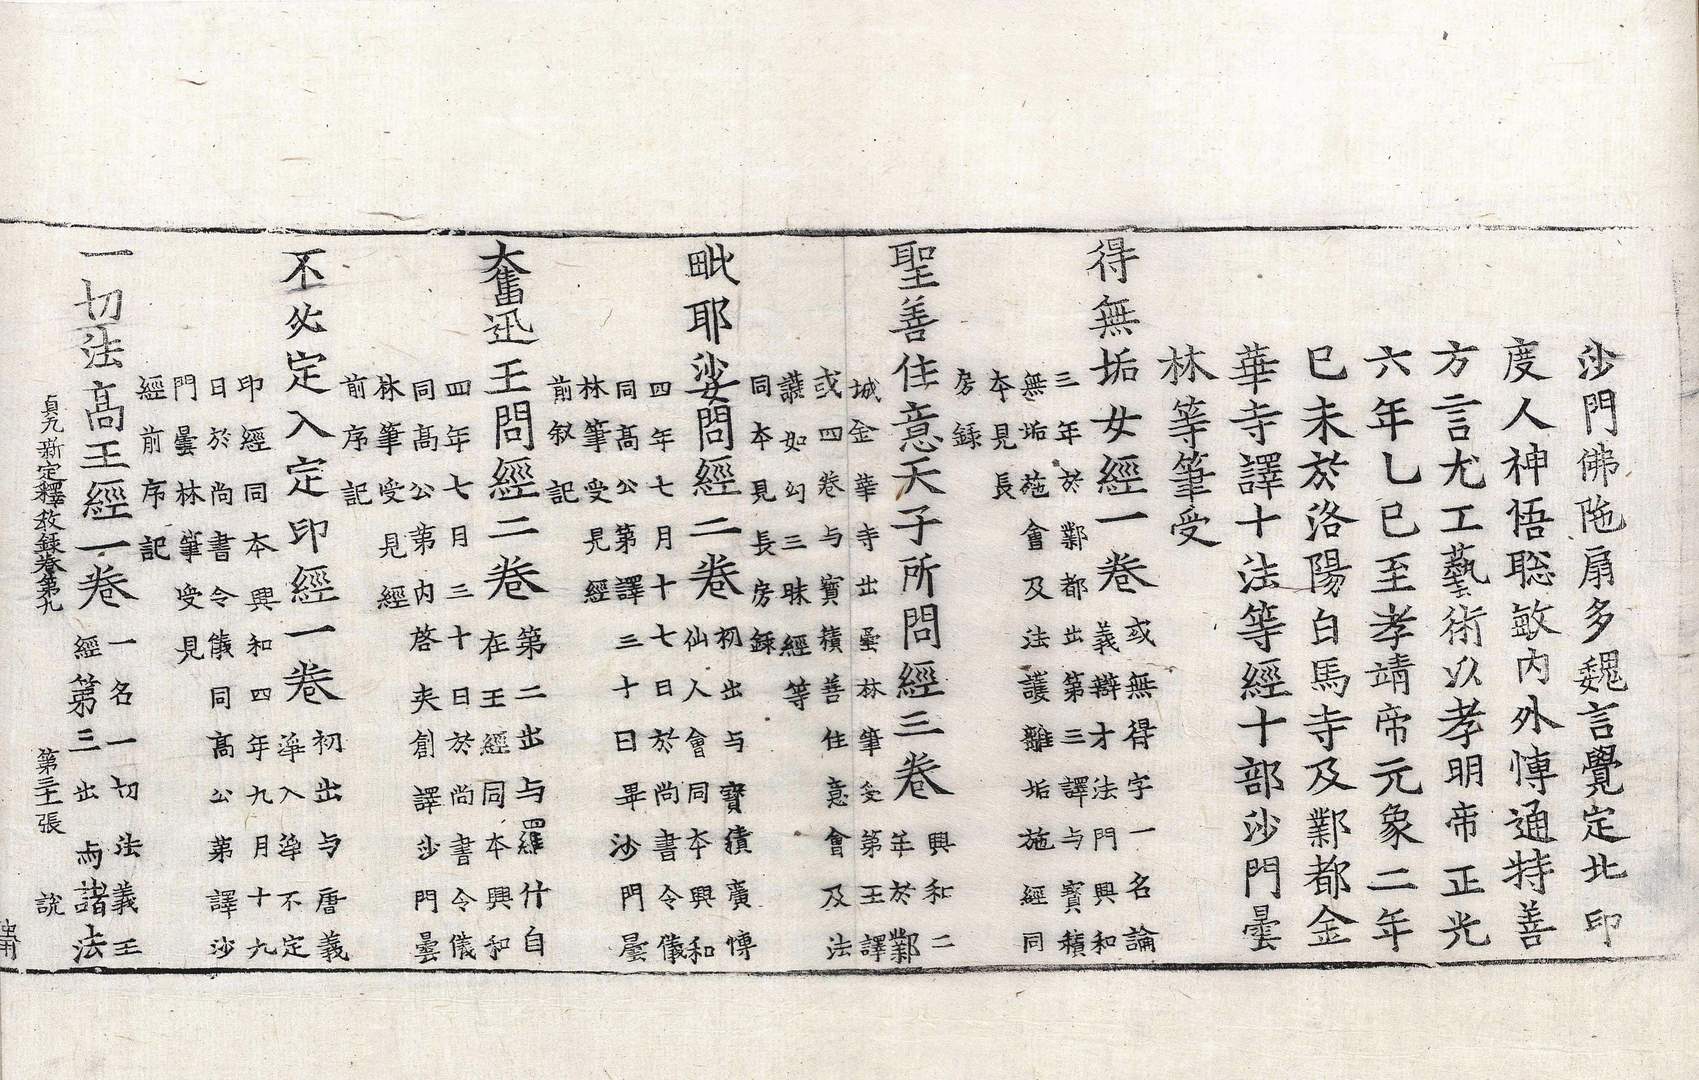 沙門佛陁扇多魏言覺定北印
度人神悟聡敏內外愽通特善
方言尤工藝術以孝明帝正光
六年乙巳至孝靖帝元象二年
巳未於洛陽白馬寺及鄴都金
華寺譯十法等經十部沙門曇
林等筆受
得無垢女經一卷
或無得字一名論
義辯才法門興和
三年於鄴都出第三譯与寶積
無垢施會及法護離垢施經同
本見長
房録
聖善住意天子所問經三卷
興和二
年於鄴
城金華寺出曇林筆受第三譯
或四卷与寶積善住意會及法
護如幻三昧經等
同本見長房録
毗耶娑問經二卷
初出与寶積廣愽
仙人會同本興和
四年七月十七日於尚書令儀
同高公第譯三十日畢沙門曇
林筆受見經
前叙記
奮迅王問經二卷
第二出与羅什自
在王經同本興和
四年七月三十日於尚書令儀
同高公第内啓夾創譯沙門曇
林筆受見經
前序記
不必定入定印經一卷
初出与唐義
淨入㝎不定
印經同本興和四年九月十九
日於尚書令儀同高公第譯沙
門曇林筆受見
經前序記
一切法高王經一卷
一名一切法義王
經第三出与諸法
貞元新定釋教録卷第九 第三十張 說